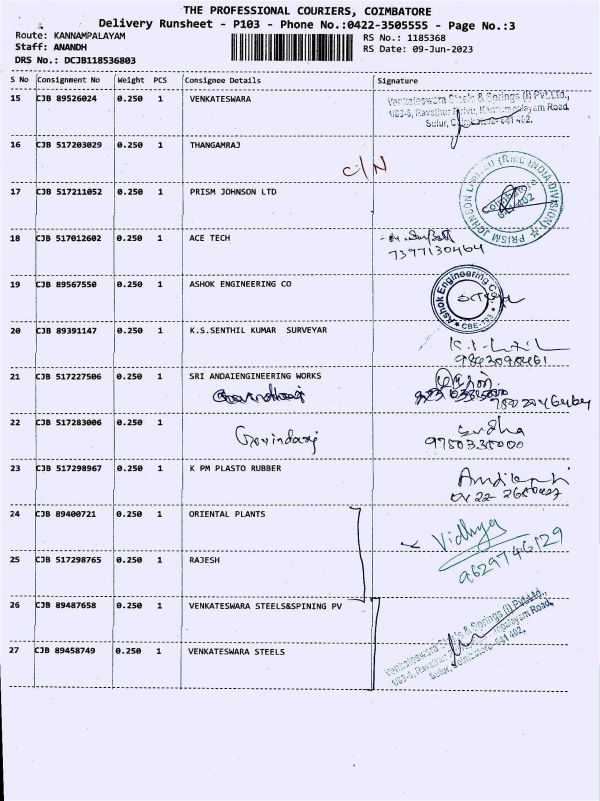 THE PROFESSIONAL COURIERS, COIMBATORE
Delivery Runsheet - P103 - Phone No.:0422-3505555 - Page No.:3
Route: KANNAMPALAYAM RS No.: 1185368
Staff: ANANDH RS Date: 09-Jun-2023
DRS No.: DCJB118536803
S No Consignment No Weight PCS Consignee Details Signature
15 CJB 89526024 0.250 1 VENKATESWARA
Venkateswara Steels & Springs (I) Pvt.Ltd.,
Kannampalayam Road,
Sulur, Coimbatore-641 402.
16 CJB 517203029 0.250 1 THANGAMRAJ
C/N
17 CJB 517211052 0.250 1 PRISM JOHNSON LTD
PRISM JOHNSON LIMITED (RMC INDIA DIVISION)
18 CJB 517012602 0.250 1 ACE TECH
7397130464
19 CJB 89567550 0.250 1 ASHOK ENGINEERING CO
Ashok Engineering Co.
20 CJB 89391147 0.250 1 K.S.SENTHIL KUMAR SURVEYAR
21 CJB 517227506 0.250 1 SRI ANDAIENGINEERING WORKS
22 CJB 517283006 0.250 1
Govindaraj Sudha
9750335000
23 CJB 517298967 0.250 1 K PM PLASTO RUBBER
24 CJB 89400721 0.250 1 ORIENTAL PLANTS
Vidhya
9629746129
25 CJB 517298765 0.250 1 RAJESH
26 CJB 89487658 0.250 1 VENKATESWARA STEELS&SPINING PV
Venkateswara Steels & Springs (I) Pvt.Ltd.,
Kannampalayam Road,
Sulur, Coimbatore-641 402.
27 CJB 89458749 0.250 1 VENKATESWARA STEELS